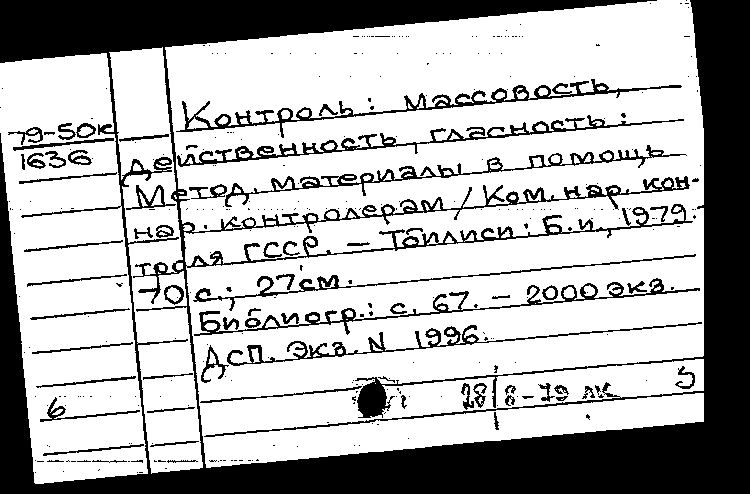 79-50к
1636
Контроль: массовость,
действенность, гласность:
Метод. материалы в помощь
нар. контролерам / Ком. нар. кон-
троля ГССР. - Тбилиси: Б.и., 1979.-
70 с.; 27 см.
Библиогр.: с. 67. - 2000 экз.
ДСП. Экз. N 1996.
6
28/8-79 лк